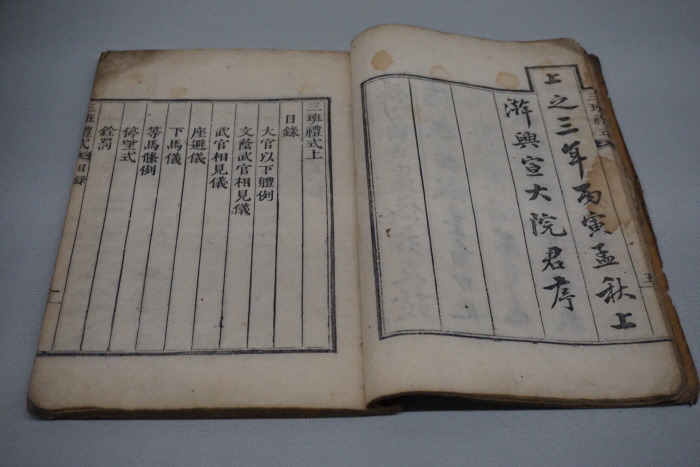 三班禮式
五
上之三年丙寅孟秋上
澣興宣大院君序
三班禮式上
目錄
大官以下體例
文蔭武官相見儀
武官相見儀
座避儀
下馬儀
等馬條例
停望式
銓罰
三班禮式
目錄
一